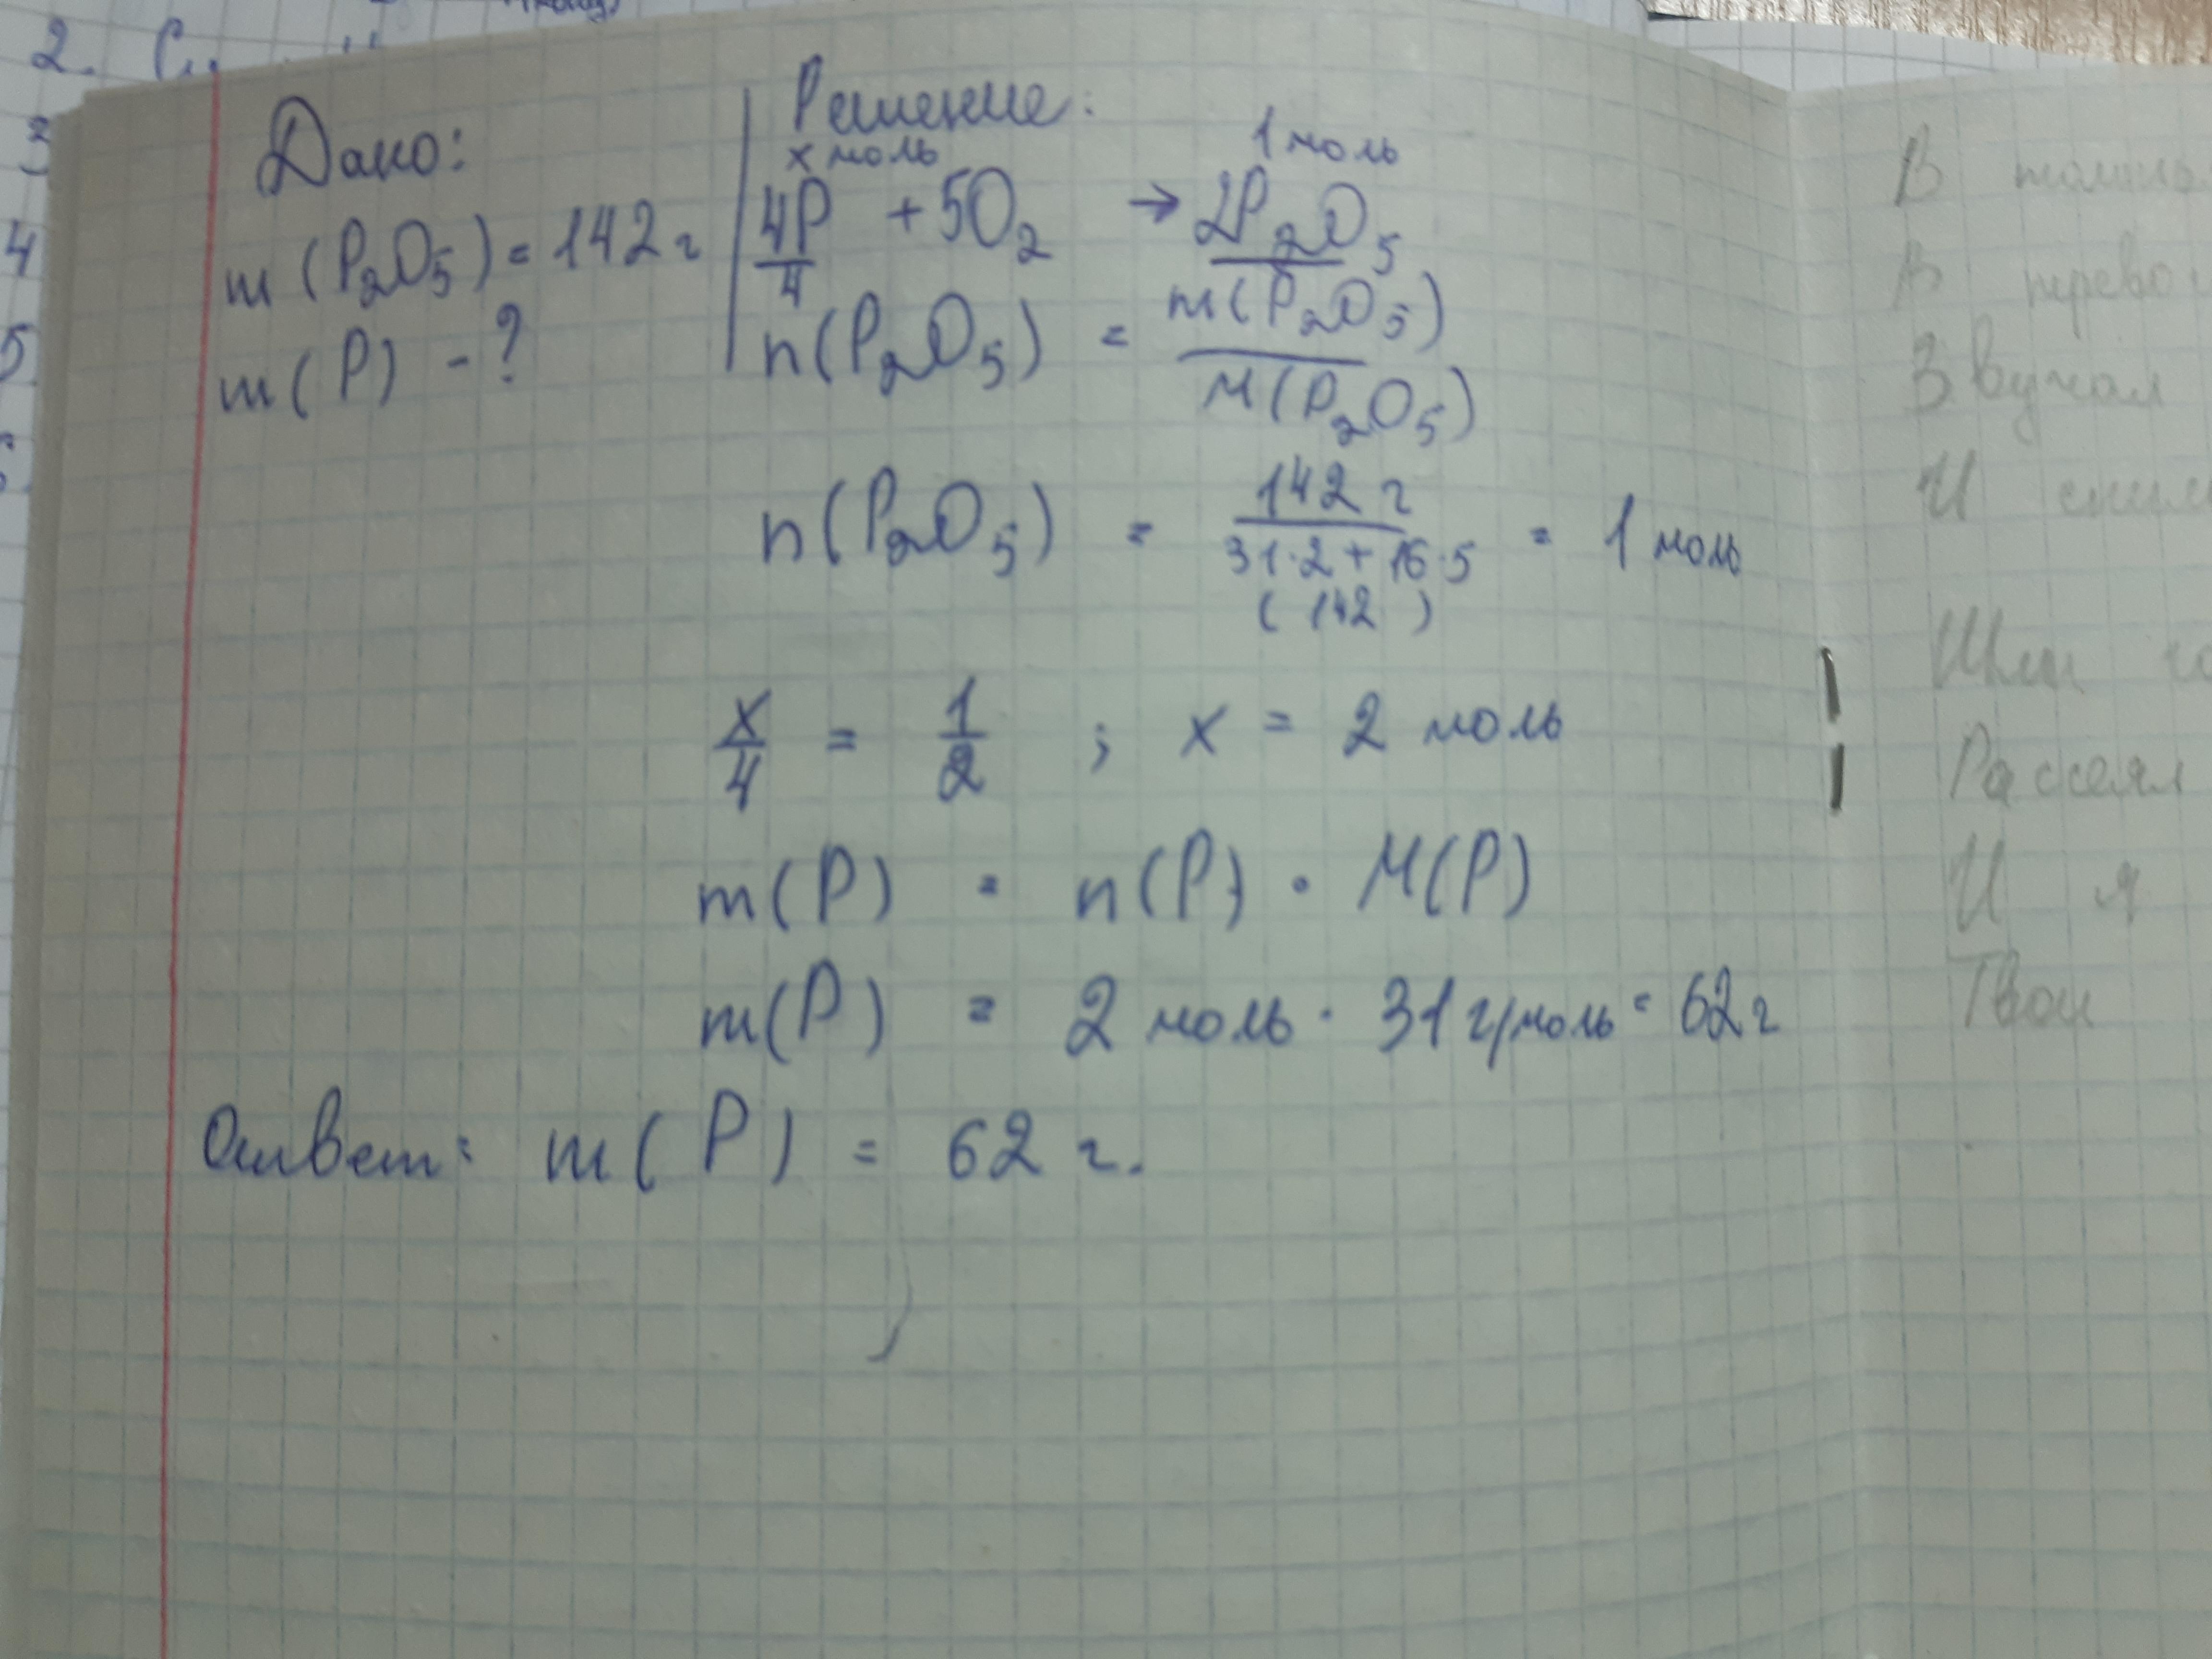 2.
3
4
5
Дано:
m(P₂O₅) = 142 г
m(P) - ?
Решение:
x моль 1 моль
4P + 5O₂ → 2P₂O₅
4
n(P₂O₅) = m(P₂O₅) / M(P₂O₅)
n(P₂O₅) = 142 г / 31·2 + 16·5 = 1 моль
(142)
x/4 = 1/2 ; x = 2 моль
m(P) = n(P) · M(P)
m(P) = 2 моль · 31 г/моль = 62 г
Ответ: m(P) = 62 г.
В
В
Звучал
И
Шли
Рассеял
И я
Твои